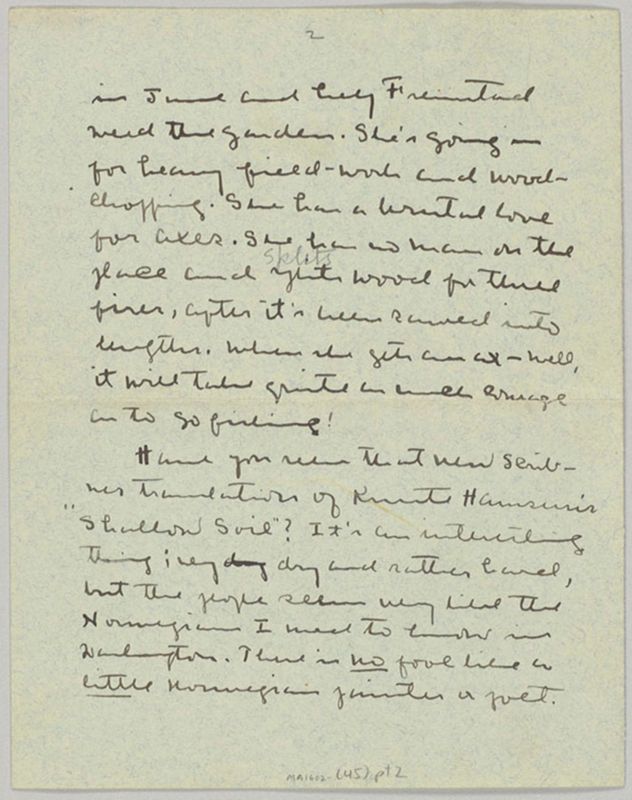 2
in June and help Fremstad
weed the garden. She's going in
for heavy field-work and wood-
chopping. She has a brutal love
for axes. She has no man on the
splits
place and splits wood for three
fires, after it's been sawed into
lengths. When she gets an ax - well,
it will take quite as much courage
as to go fishing!
Have you seen that new Scrib-
ner translation of Knute Hamsun's
"Shallow Soil"? It's an interesting
thing; very dry and rather hard,
but the people seem very like the
Norwegians I used to know in
There is no fool like a
little Norwegian painter or poet.
MA1602-(45) pt 2